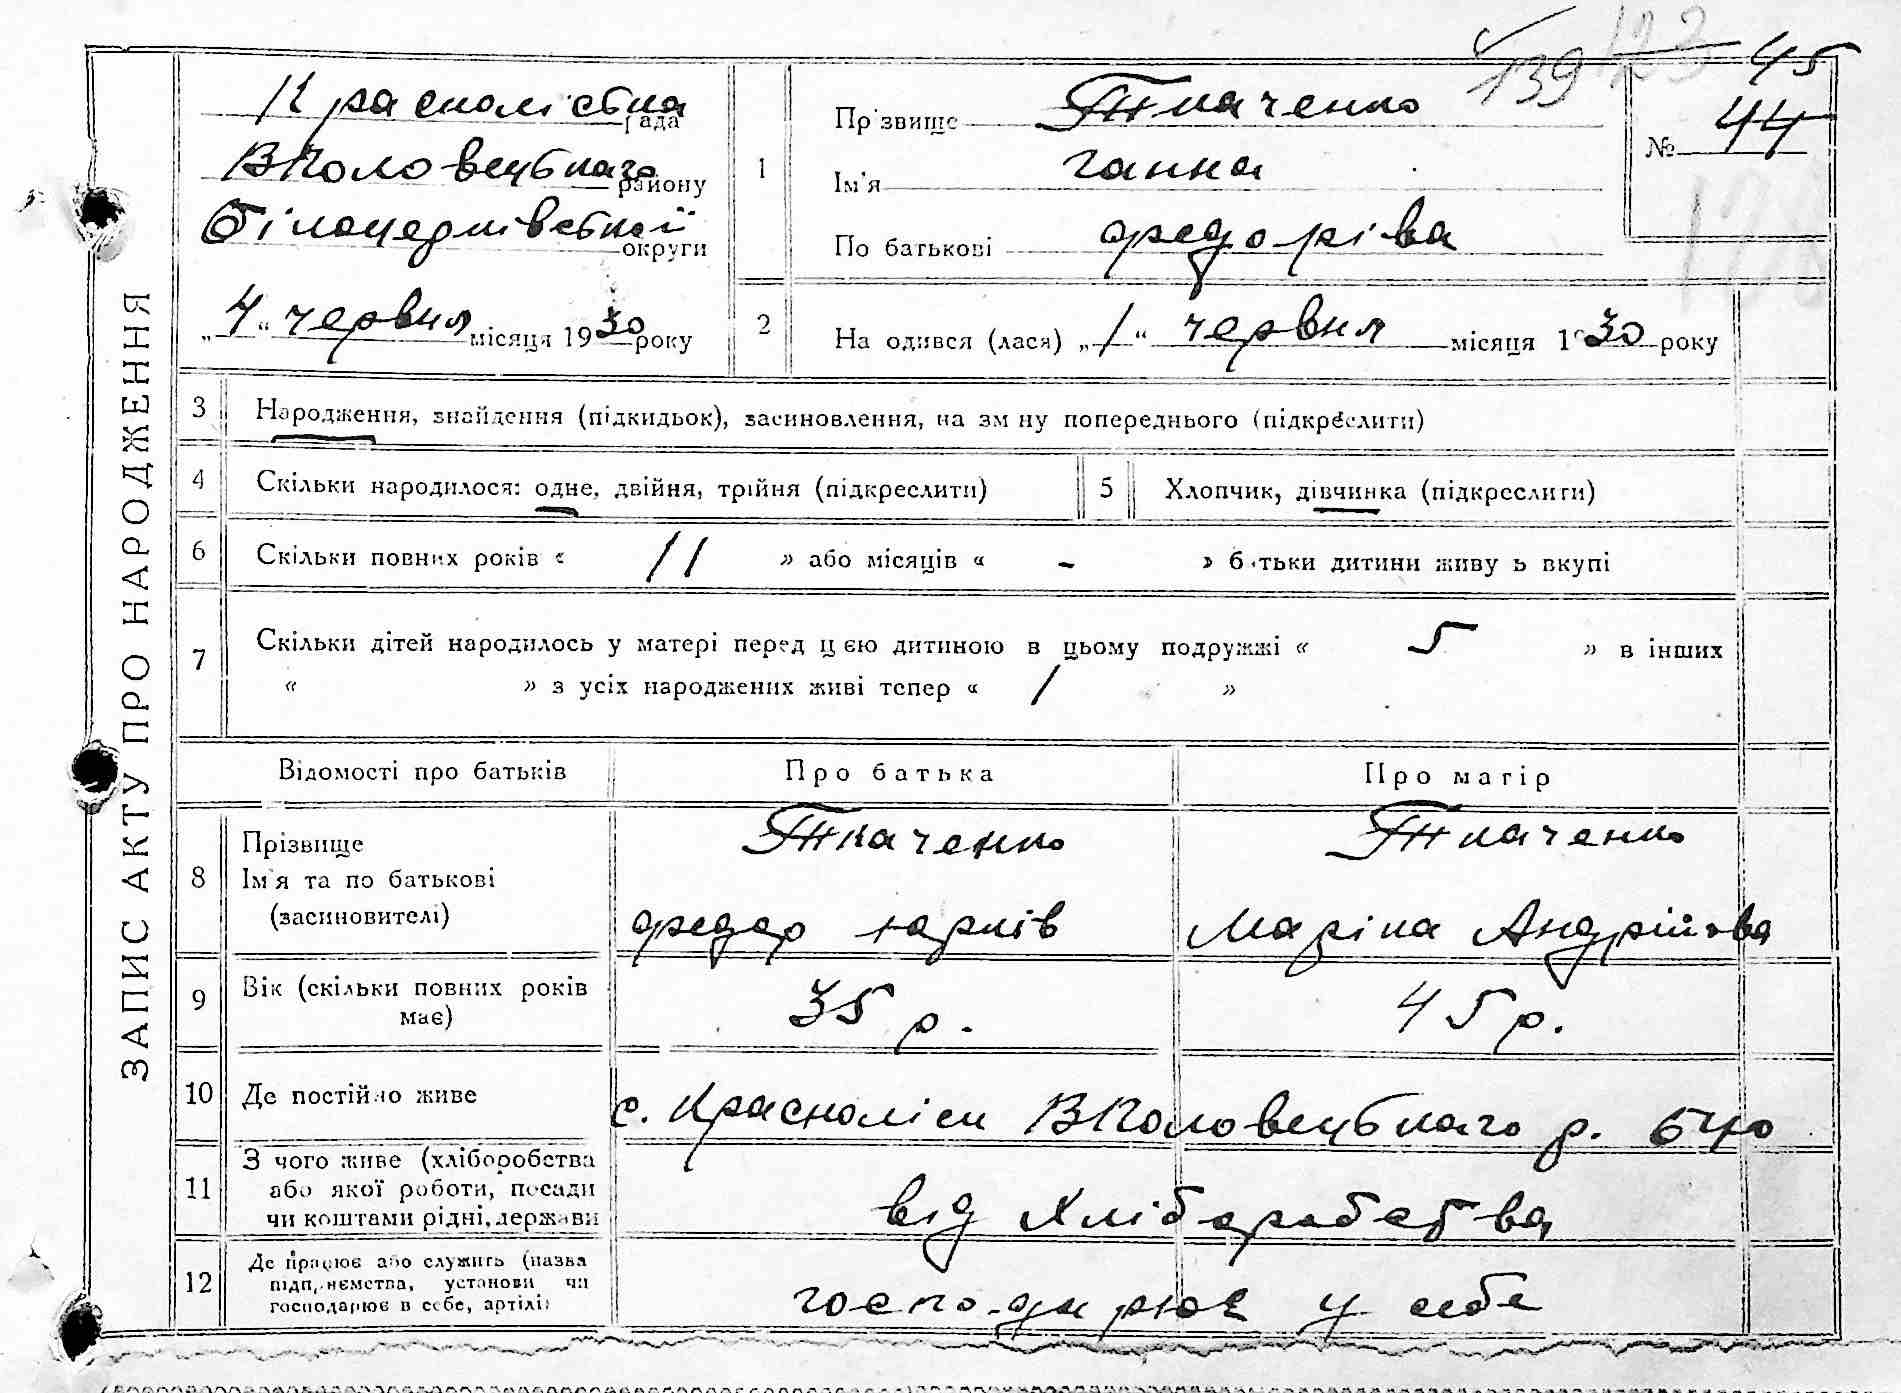 139 123 45
Краснолісћка рада
ВПоловецького району
Білоцерківської округи
„4“ червня місяця 1930 року
1
Прізвище Ткаченко
Ім'я Ганна
По батькові федоріва
№ 44
2
На одився (лася) „1“ червня місяця 1930 року
ЗАПИС АКТУ ПРО НАРОДЖЕННЯ
3 Народження, знайдення (підкидьок), засиновлення, на зм ну попереднього (підкреслити)
4 Скільки народилося: одне, двійня, трійня (підкреслити)
5 Хлопчик, дівчинка (підкреслити)
6 Скільки повних років « 11 » або місяців « - » б тьки дитини живу ь вкупі
7 Скільки дітей народилось у матері перед цією дитиною в цьому подружжі « 5 » в інших
« » з усіх народжених живі тепер « 1 »
Відомості про батьків Про батька Про матір
8 Прізвище
Ім'я та по батькові
(засиновителі)
Ткаченко Ткаченко
федор юрків Маріна Андрійова
9 Вік (скільки повних років
має)
35 р. 45 р.
10 Де постійно живе
с. Красноліси ВПоловецького р. БЦО
11 З чого живе (хліборобства
або якої роботи, посади
чи коштами рідні, держави
від Хліборобства
12 Де працює або служить (назва
підп. немства, установи чи
господарює в себе, артілі)
господарює у себе